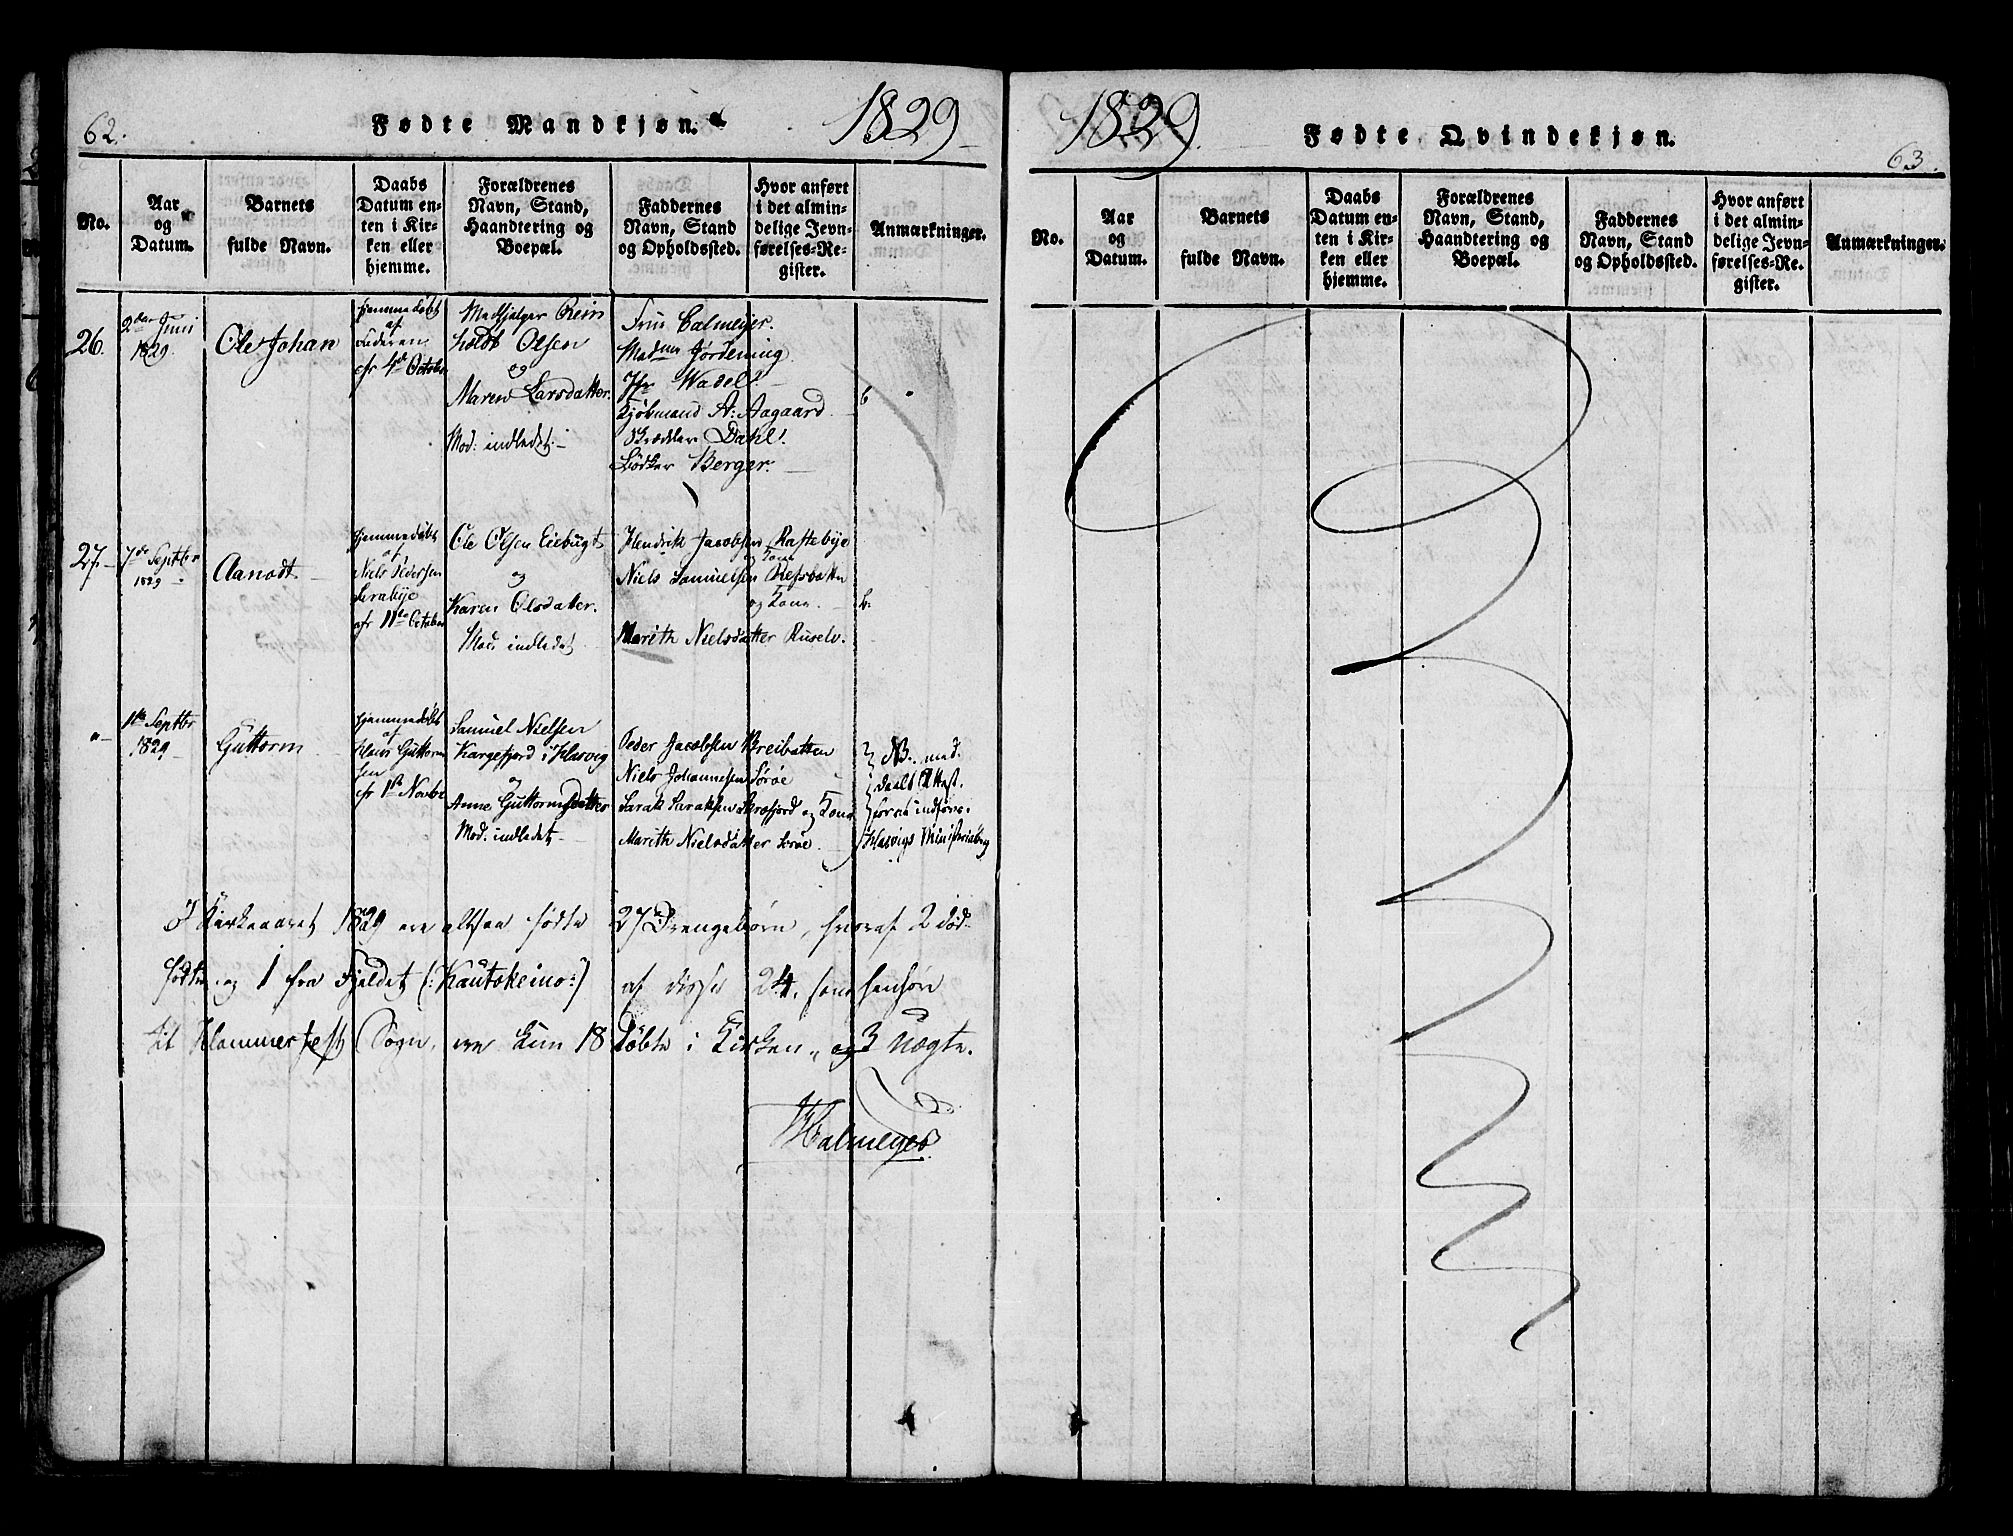 62.
Fødte Mandkjøn.
1829
No.
Aar
og
Datum.
Barnets
fulde Navn.
Daabs
Datum en-
ten i Kir-
ken eller
hjemme.
Forældrenes
Navn, Stand,
Haandtering og
Boepæl.
Faddernes
Navn, Stand
og Opholdssted.
Hvor anført
i det almin-
delige Jevn-
førelses-Re-
gister.
Anmærkninger.
26.
2den Juni
1829.
Ole Johan
Hjemmedøbt
af
Faderen
cfr 4de October
Medhjelper Rein
holdt Olsen
og
Maren Larsdatter.
Mod: indledet.
Fru Calmeyer.
Madme Jördening
Jfr Wadel.
Kjöbmand A: Aagaard
Skrædder Dahl.
Bödker Berger.
6
27.
7de Septbr
1829
Aanodt.
Hjemmedøbt
af
Niels Pedersen
cfr 11te October
Ole Olsen Eiebugt
og
Karen Olsdatter.
Mod. indledet
Hendrik Jacobsen Raftebye
og Kone
Niels Samuelsen Refsbotten
og Kone.
Marith Nielsdatter Ruselv.
6.
1te Septbr
1829
Guttorm
Hjemmedøbt
af
Hans Guttorm
sen
cfr 1ste Novbr
Samuel Nielsen
Kargefjord i Hasvig
og
Anne Guttormsdatter
Mod. indledet
Peder Jacobsen Breibotten
Niels Johannesen Sörøe
Sarak Saraksen Skrøfjord og Kone
Marith Nielsdatter Sörøe.
NB. med
deelt Attest.
for at indføres i
Hasvigs Ministerialbog
I Kirkeaaret 1829 ere altsaa födte 27 Drengebørn, hvoraf 2 död-
födte og 1 fra Fjeldet (:Kautokeino:) af disse 24, som henhöre
til Hammerfest Sogn, ere kun 18 döbte i Kirken, og 3 uægte.
Calmeyer
1829.
Fødte Qvindekjøn.
63.
No.
Aar
og
Datum.
Barnets
fulde Navn.
Daabs
Datum en-
ten i Kir-
ken eller
hjemme.
Forældrenes
Navn, Stand,
Haandtering og
Boepæl.
Faddernes
Navn, Stand
og Opholdssted.
Hvor anført
i det almin-
delige Jevn-
førelses-Re-
gister.
Anmærkninger.